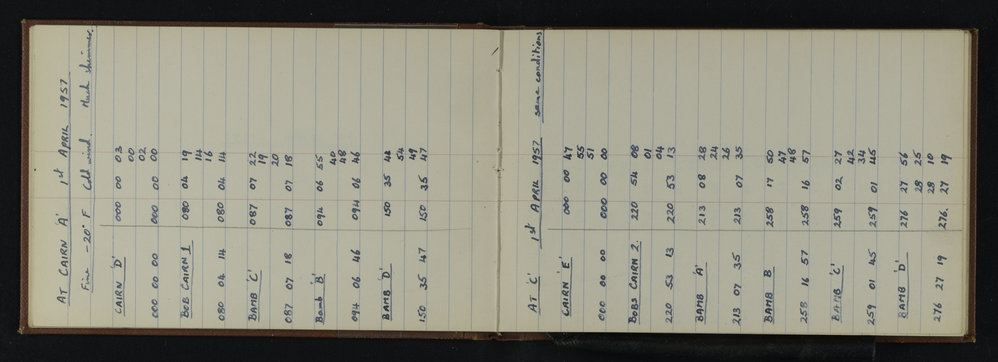 AT CAIRN 'A' 1st APRIL 1957
Fine -20° F Cold wind. Much shimmer.
CAIRN 'D' 000 00 03
00
02
000 00 00 000 00 00
BOB CAIRN 1 080 04 19
14
16
080 04 14 080 04 14
BAMB 'C' 087 07 22
19
20
087 07 18 087 07 18
Bamb 'B' 094 06 55
40
48
094 06 46 094 06 46
BAMB 'D' 150 35 42
54
49
150 35 47 150 35 47
AT 'C' 1st APRIL 1957 same conditions
CAIRN 'E' 000 00 47
55
51
000 00 00 000 00 00
BOBS CAIRN 2. 220 54 08
01
04
220 53 13 220 53 13
BAMB 'A' 213 08 28
24
26
213 07 35 213 07 35
BAMB B 258 17 50
47
48
258 16 57 258 16 57
BAMB 'C' 259 02 27
42
34
259 01 45 259 01 45
BAMB 'D' 276 27 56
28 25
28 10
276 27 19 276. 27 19